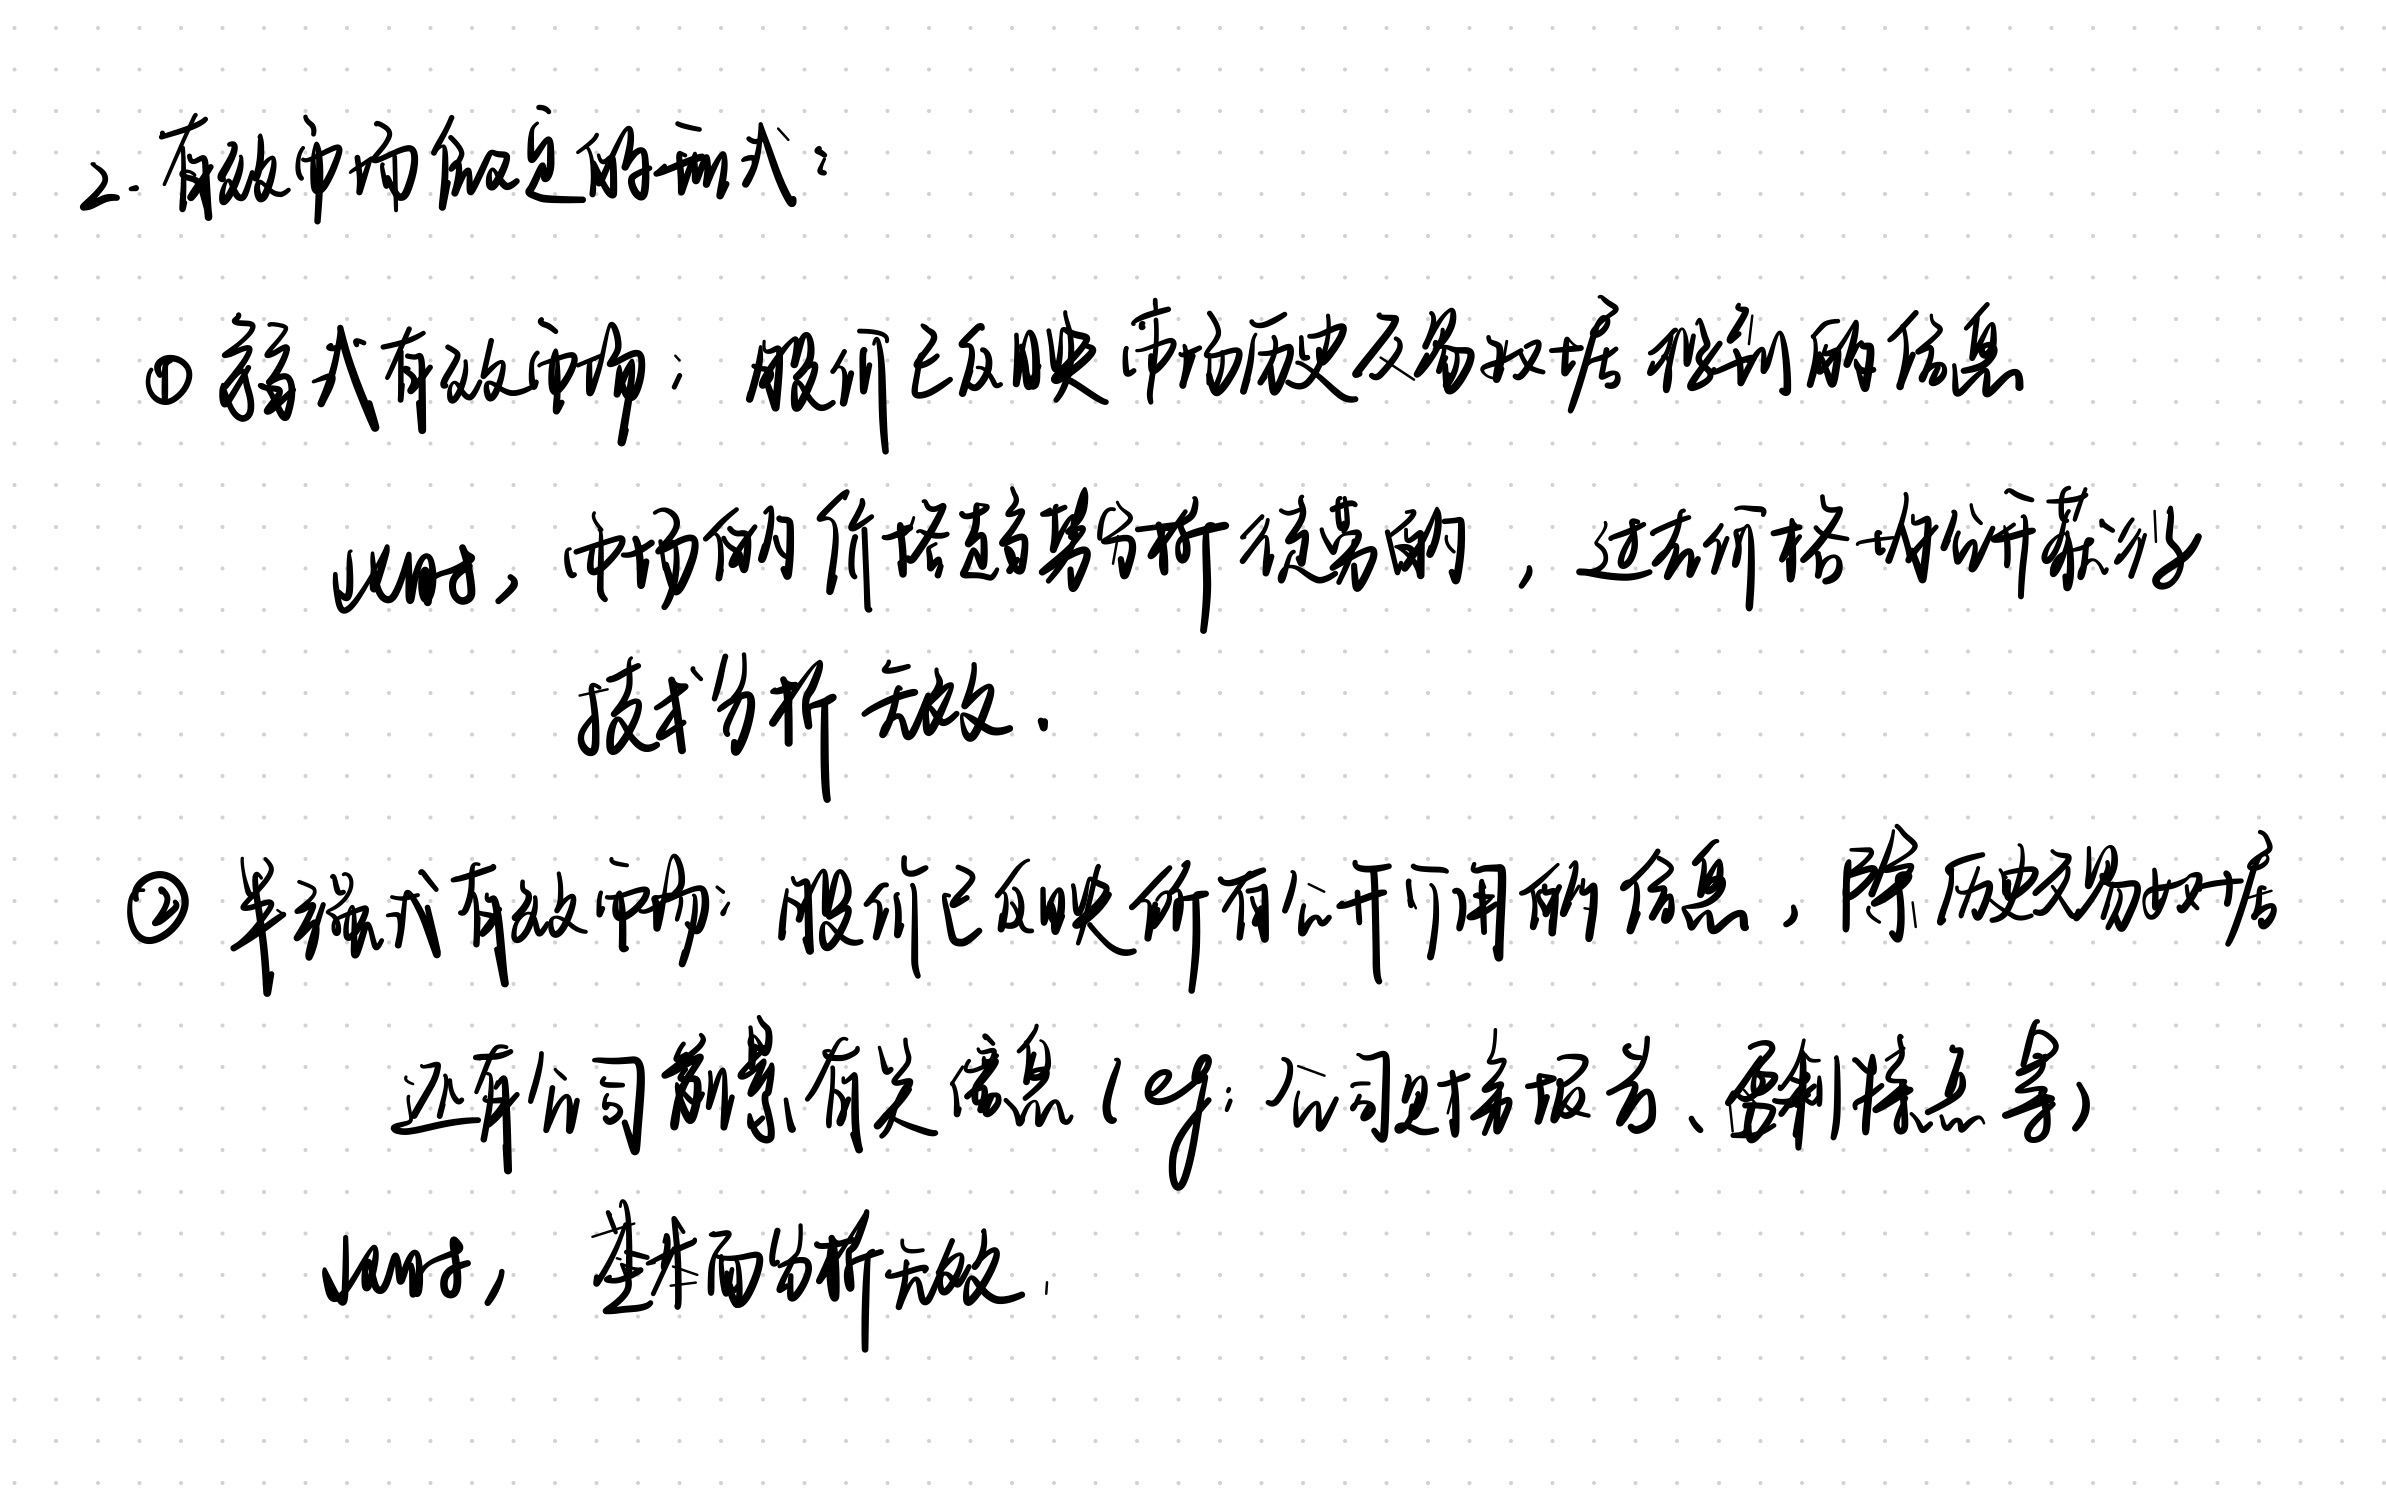 2. 有效市场假定的形式:
① 弱式有效市场: 股价已反映市场历史交易数据得到的信息
, 市场的价格趋势分析徒劳的, 过去价格公开获得
技术分析无效.
② 半强式有效市场: 股价已反映所有公开可用的信息, 除历史交易数据
还有公司前景有关信息 (eg: 公司财务报表、专利特点等)
, 基本面分析无效.